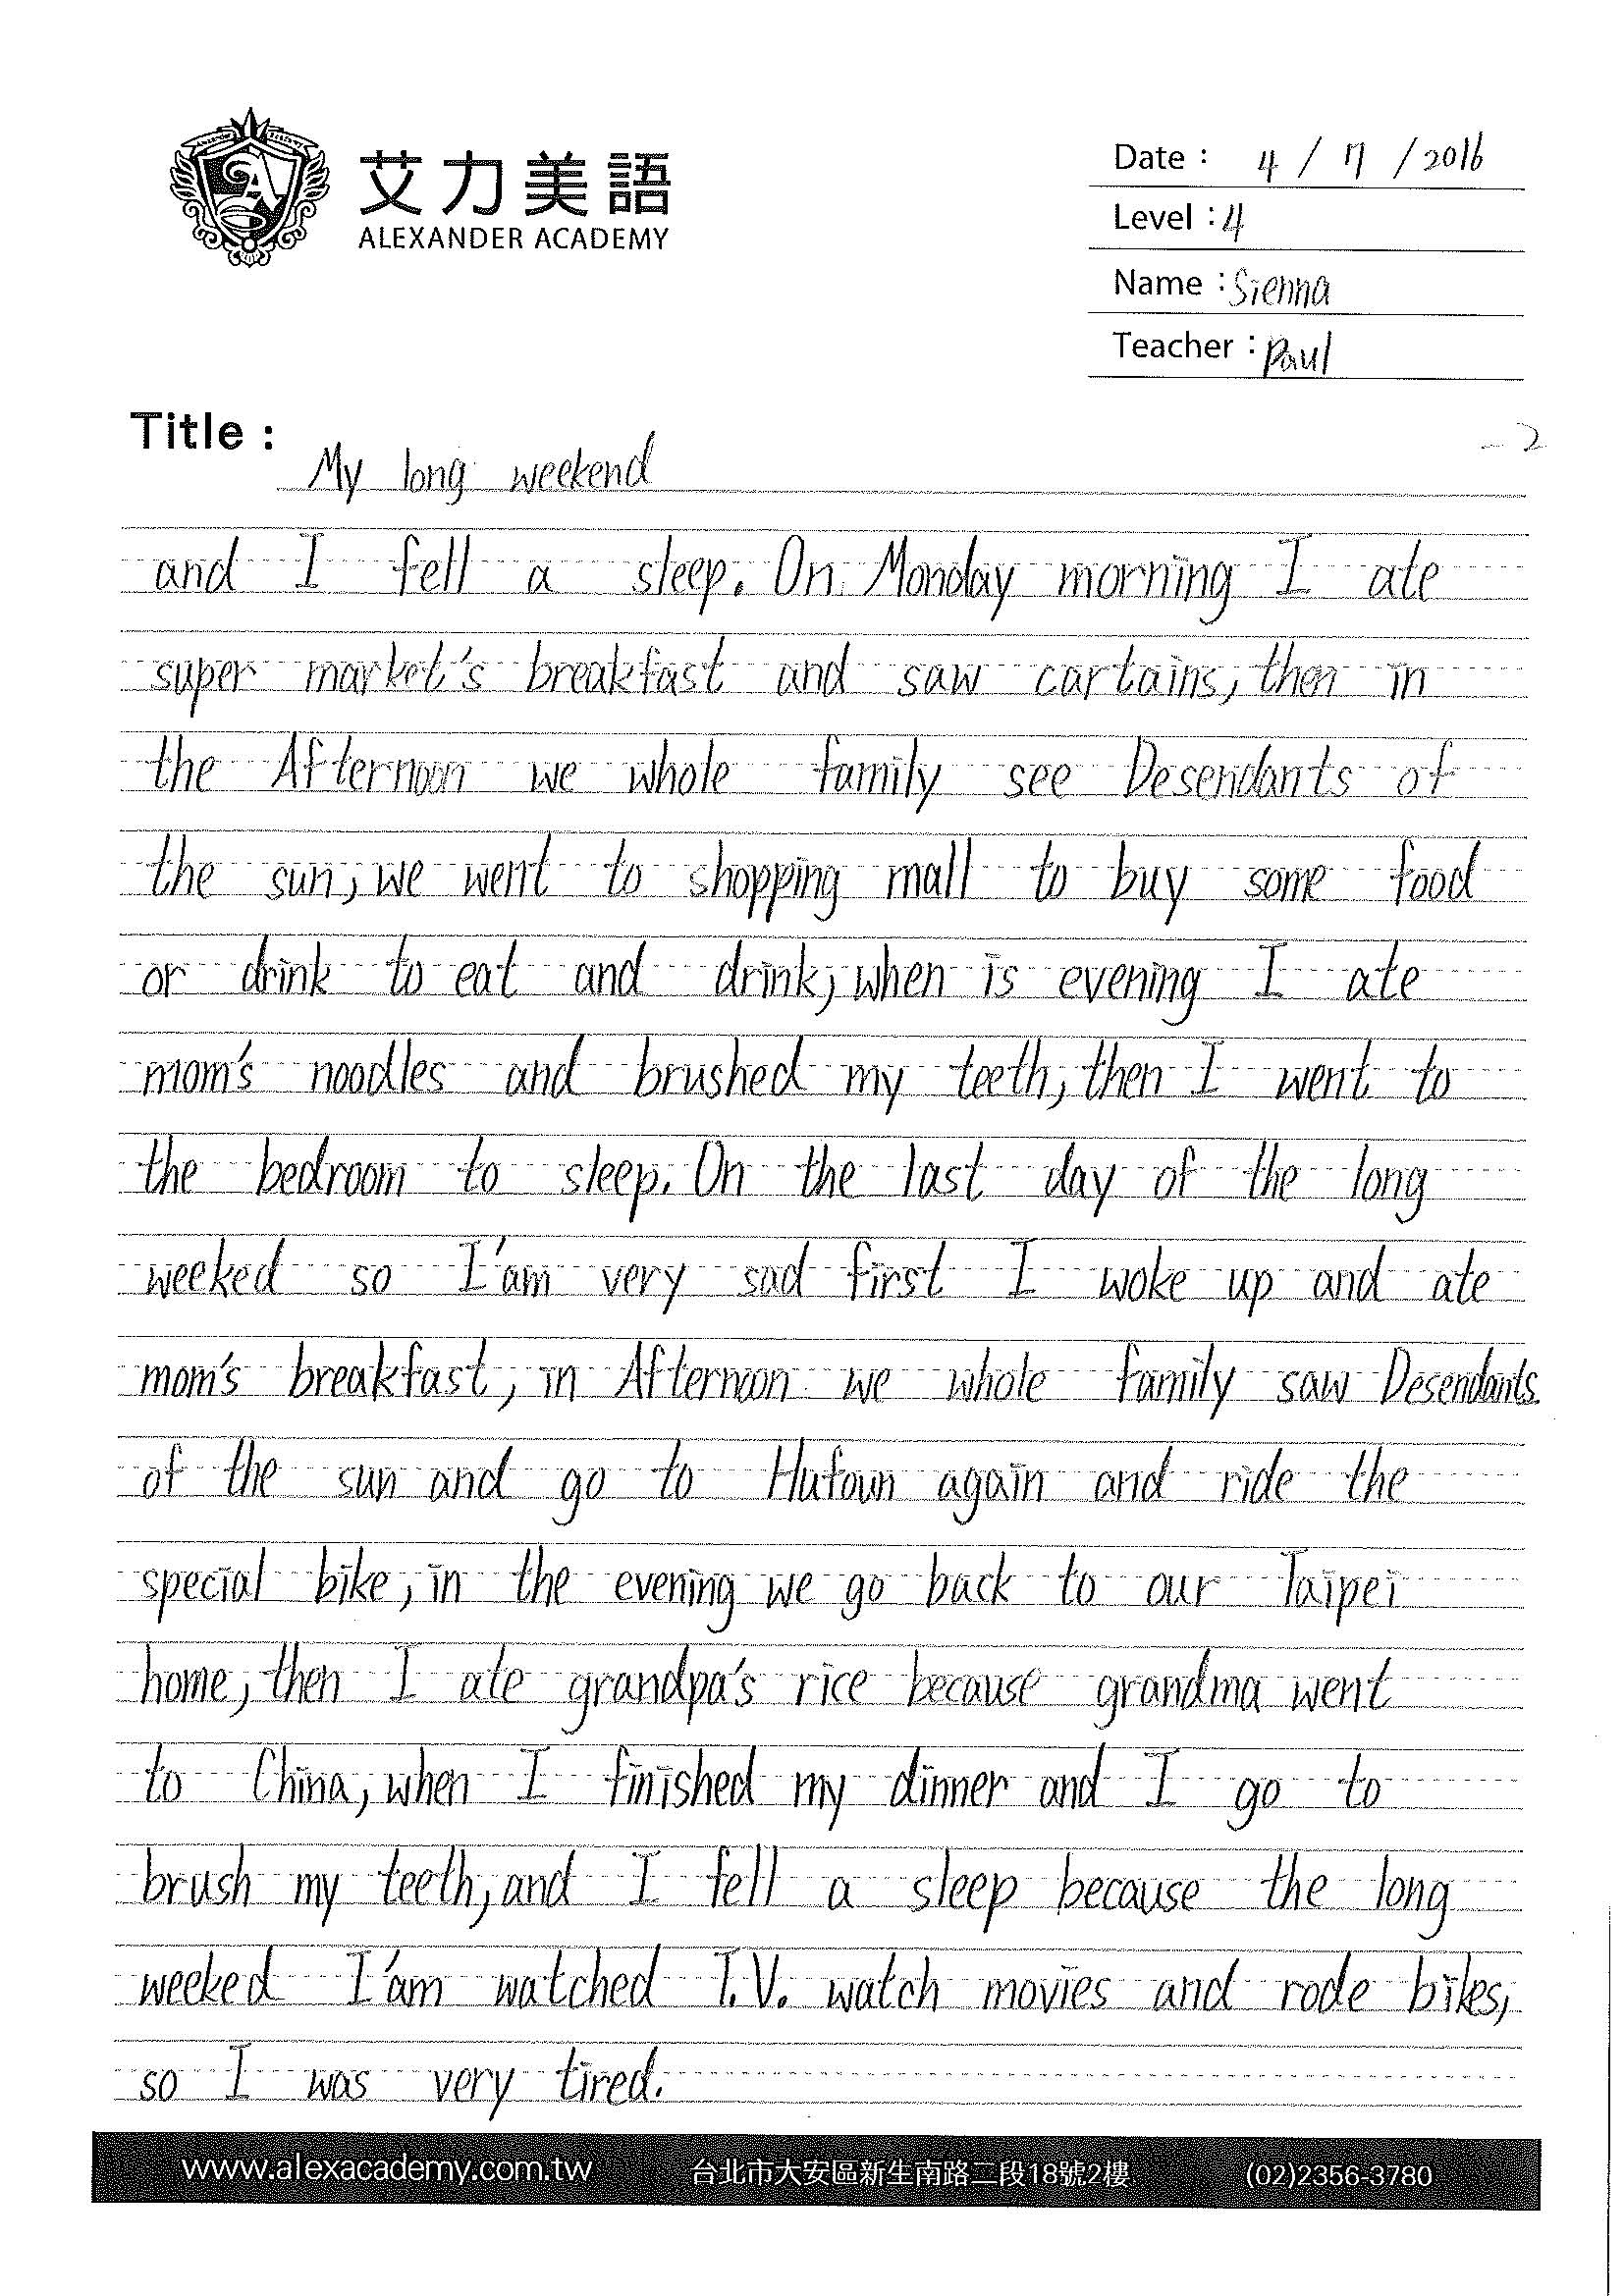 艾力美語
ALEXANDER ACADEMY
Date : 4 / 7 / 2016
Level : 4
Name : Sienna
Teacher : Paul
Title : My long weekend
- 2
and I fell a sleep. On Monday morning I ate
super market's breakfast and saw cartains, then in
the Afternoon we whole family see Desendants of
the sun, we went to shopping mall to buy some food
or drink to eat and drink, when is evening I ate
mom's noodles and brushed my teeth, then I went to
the bedroom to sleep. On the last day of the long
weeked so I'am very sad first I woke up and ate
mom's breakfast, in Afternoon we whole family saw Desendants
of the sun and go to Hufoun again and ride the
special bike, in the evening we go back to our Taipei
home, then I ate grandpa's rice because grandma went
to China, when I finished my dinner and I go to
brush my teeth, and I fell a sleep because the long
weeked I'am watched T.V. watch movies and rode bikes,
so I was very tired.
www.alexacademy.com.tw 台北市大安區新生南路二段18號2樓 (02)2356-3780